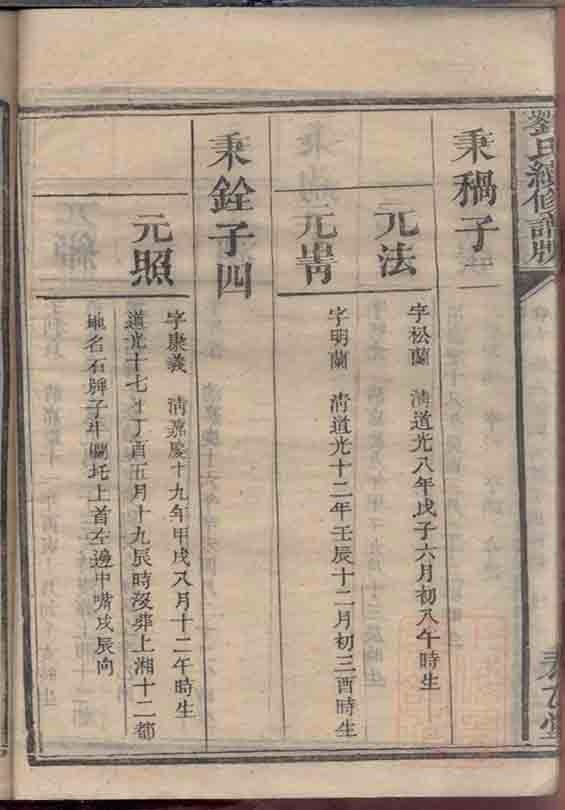 劉氏續修譜牒
秉稱子二
元法
字松蘭 清道光八年戊子六月初八午時生
元冑
字明蘭 清道光十二年壬辰十二月初三酉時生
秉銓子四
元照
字康義 清嘉慶十九年甲戌八月十二午時生
道光十七年丁酉五月十九辰時歿葬上湘十二都
地名石牌子午關圫上首左邊中嘴戌辰向